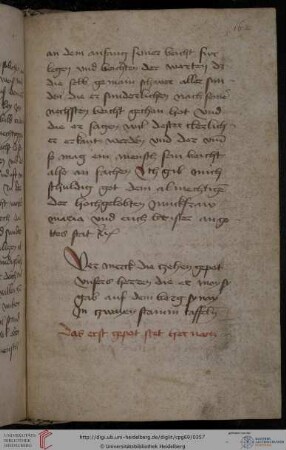 an dem anfang seiner beicht sur
legen vnd beichten der worten de
die selb gemain schencz aller sun
den die er sunderlichen nach seiner
nechsten beicht gethan hat vnd
die er sagen wil dester
er erkant werden vnd der vm
so mag ein mensch sein beicht
also an fachen Ich gib mich
schuldig got dem almechtigen
der hochgelobten junckfraw
maria vnd euch priester an
gottes stat
Hie merck die zehen gepot
vnsers herren die er moysi
gab auf dem berg synay
In zwayen stainin taffeln
Das erst gepot stet hie nach
UNIVERSITÄTS-
BIBLIOTHEK
HEIDELBERG
http://digi.ub.uni-heidelberg.de/diglit/cpg69/0357
© Universitätsbibliothek Heidelberg